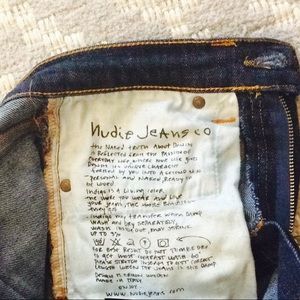 Nudie Jeans co
the Naked truth About Denim
is Reflected from the passion of
everyday life, where your life gives
Denim its unique character
formed by you into a second skin
personal and Naked. Ready to
be loved
Indigo is a living color
the more you wear and love
your jeans, the more beautiful
they get
Indigo may transfer when damp
wash and dry separately
wash inside out, may shrink
up to 3%
For best result do not tumble dry
to get most contrast wash
please stretch inseam to get correct
length when the jeans is still damp
Design in Sweden woven
made in Italy
enjoy
www.nudiejeans.com